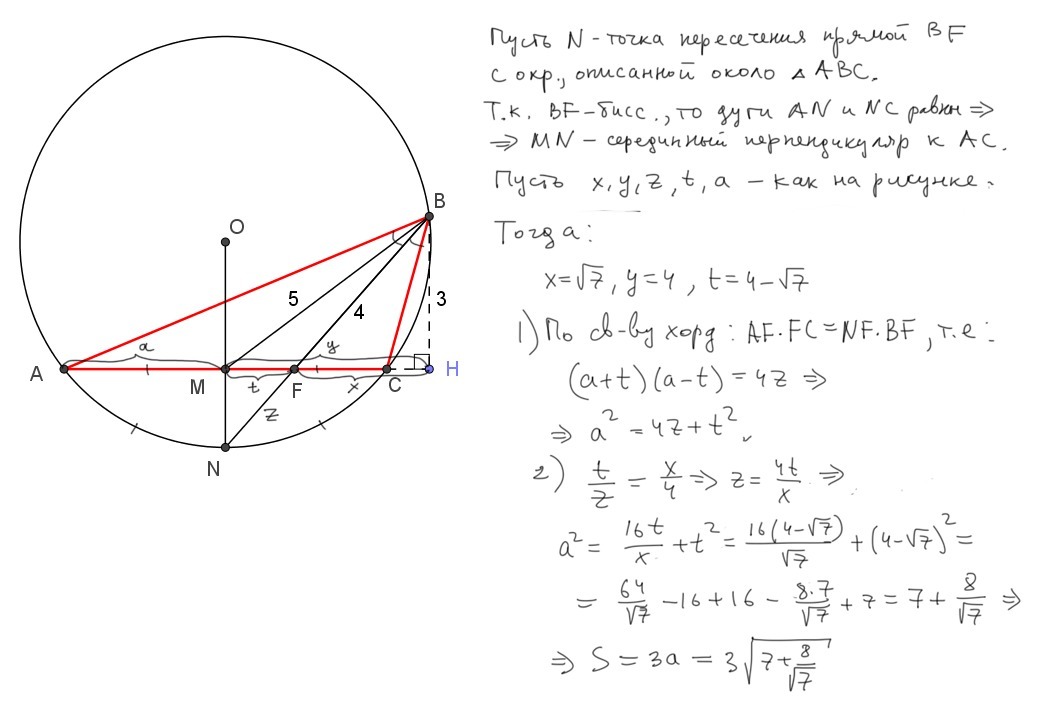 Пусть N - точка пересечения прямой BF
с окр., описанной около △ ABC.
Т.к. BF-бисс., то дуги AN и NC равны ⇒
⇒ MN - серединный перпендикуляр к AC.
Пусть x, y, z, t, a - как на рисунке.
Тогда:
x=√7, y=4, t=4-√7
1) По св-ву хорд: AF·FC=NF·BF, т.е:
(a+t)(a-t)=4z ⇒
⇒ a²=4z+t²
2) t/z = x/4 ⇒ z= 4t/x ⇒
a²= 16t/x +t²= 16(4-√7)/√7 +(4-√7)²=
= 64/√7 -16+16- 8·7/√7 +7=7+ 8/√7 ⇒
⇒ S=3a=3√(7+8/√7)
B
O
5
4
3
a
y
A
M
t
F
x
C
H
z
N